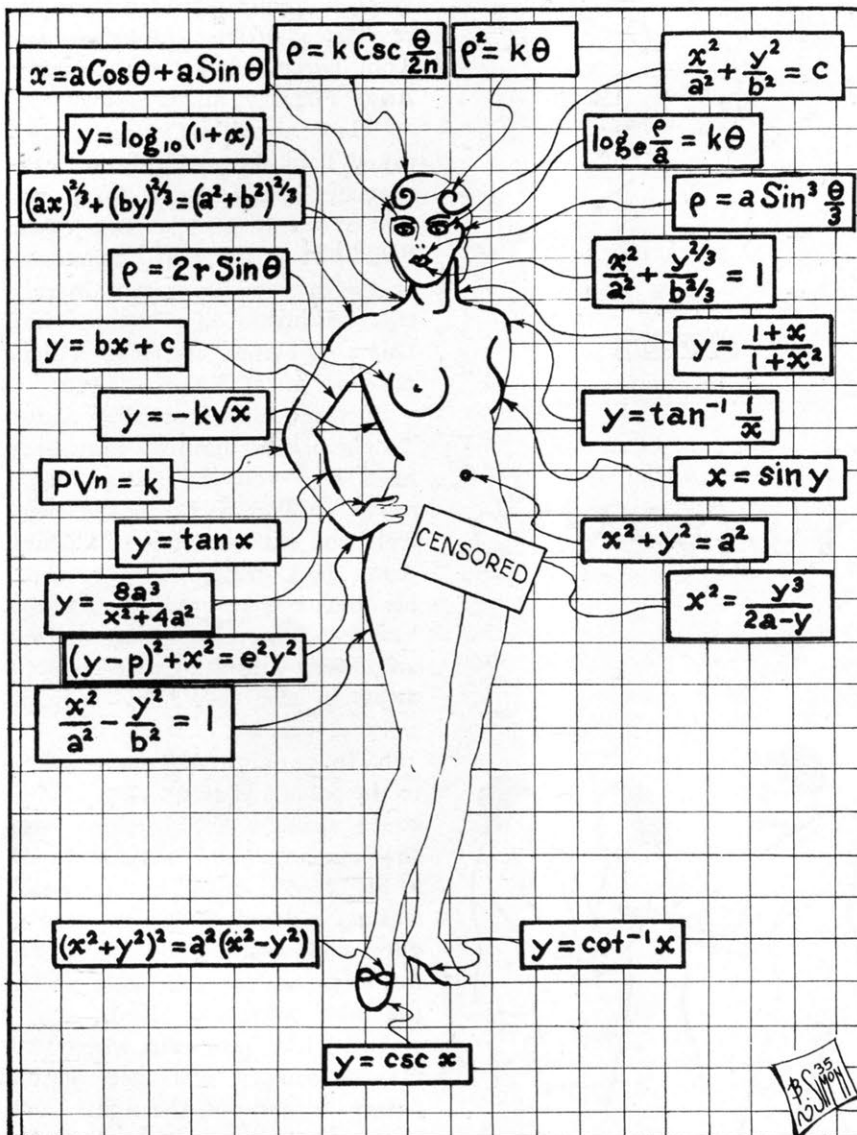 x = a Cosθ + a Sinθ
ρ = k Csc θ/2n
ρ² = kθ
x²/a² + y²/b² = c
y = log₁₀ (1+x)
logₑ ρ/a = kθ
(ax)^2/3 + (by)^2/3 = (a² + b²)^2/3
ρ = a Sin³ θ/3
ρ = 2r Sinθ
x²/a² + y^2/3/b^2/3 = 1
y = bx + c
y = 1+x/1+x²
y = -k√x
y = tan⁻¹ 1/x
PVⁿ = k
x = sin y
y = tan x
CENSORED
x² + y² = a²
y = 8a³/x² + 4a²
x² = y³/2a-y
(y - p)² + x² = e²y²
x²/a² - y²/b² = 1
(x² + y²)² = a²(x² - y²)
y = cot⁻¹ x
y = csc x
35
SIMON